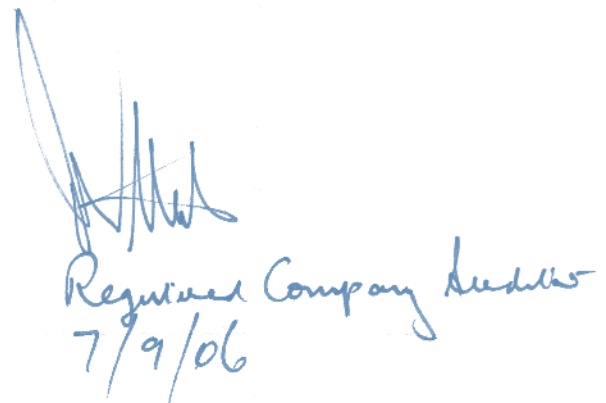 Registered Company Auditor
7/9/06